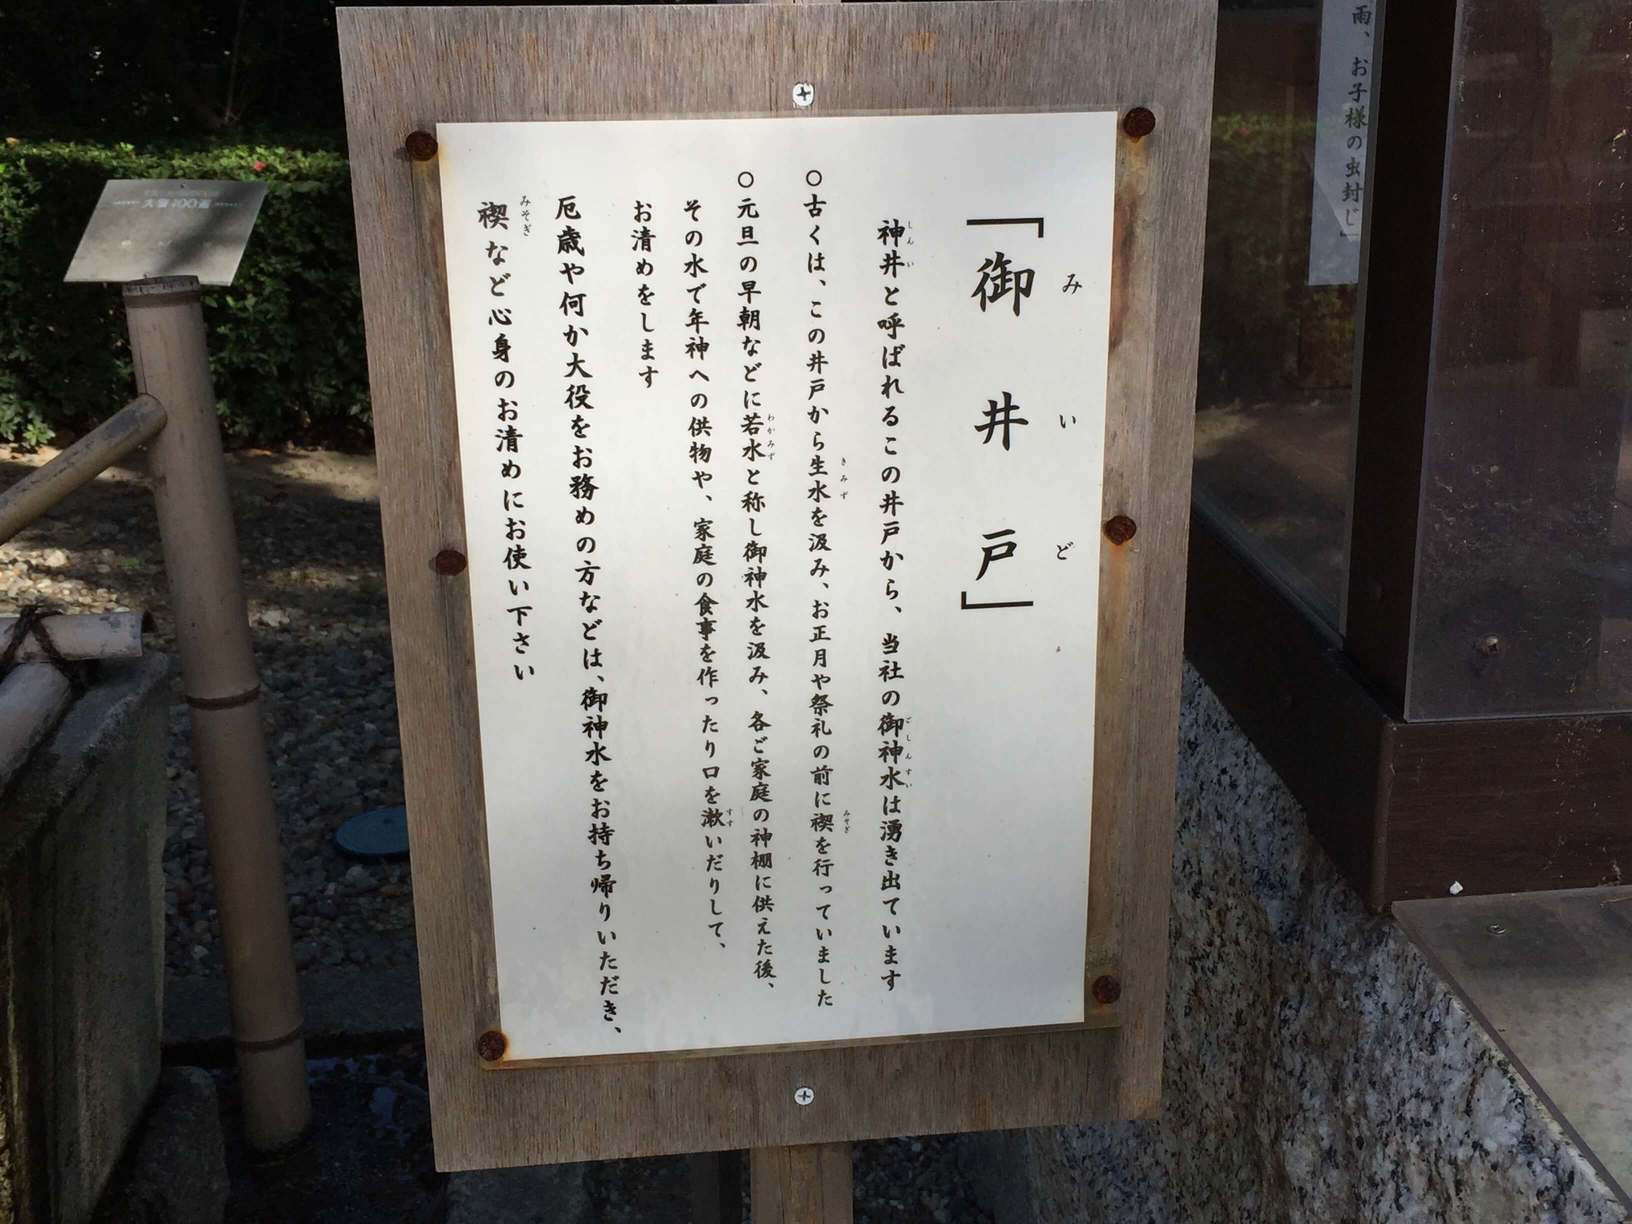 「御井戸」
みいど
神井と呼ばれるこの井戸から、当社の御神水は湧き出ています
しんい
ごしんすい
○古くは、この井戸から生水を汲み、お正月や祭礼の前に禊を行っていました
きみず
みそぎ
○元旦の早朝などに若水と称し御神水を汲み、各ご家庭の神棚に供えた後、
わかみず
その水で年神への供物や、家庭の食事を作ったり口を漱いだりして、
すす
お清めをします
厄歳や何か大役をお務めの方などは、御神水をお持ち帰りいただき、
禊など心身のお清めにお使い下さい
みそぎ
雨、お子様の虫封じ」